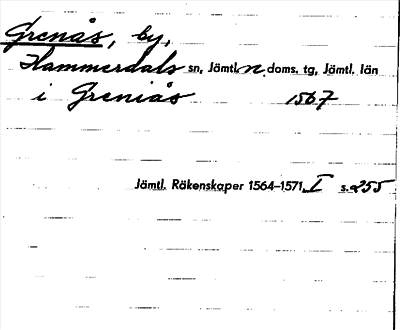 Grenås, by,
Hammerdals sn, Jämtl. n. doms. tg, Jämtl. län
i Greniås 1567
Jämtl. Räkenskaper 1564-1571, I s. 255